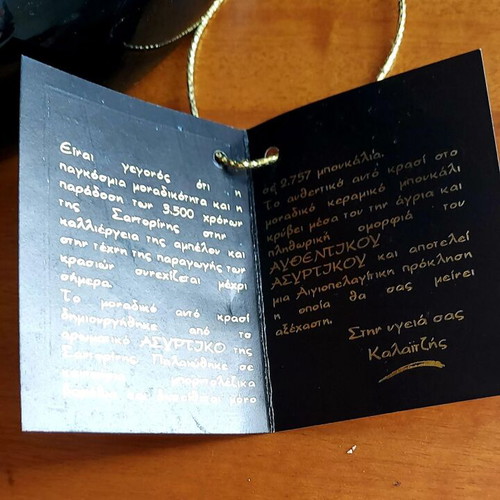 Είναι γεγονός ότι η
παγκόσμια μοναδικότητα και η
παράδοση των 3.500 χρόνων
της Σαντορίνης στην
καλλιέργεια της αμπέλου και
στην τέχνη της παραγωγής των
κρασιών συνεχίζεται μέχρι
σήμερα.
Το μοναδικό αυτό κρασί
δημιουργήθηκε από το
αρωματικό ΑΣΥΡΤΙΚΟ της
Σαντορίνης. Παλαιώθηκε σε
και μόνο
σε 2.757 μπουκάλια.
Το αυθεντικό αυτό κρασί στο
μοναδικό κεραμικό μπουκάλι
κρύβει μέσα του την άγρια και
πληθωρική ομορφιά του
ΑΥΘΕΝΤΙΚΟΥ
ΑΣΥΡΤΙΚΟΥ και αποτελεί
μια Αιγιοπελαγίτικη πρόκληση
η οποία θα σας μείνει
αξέχαστη.
Στην υγειά σας
Καλαϊτζής